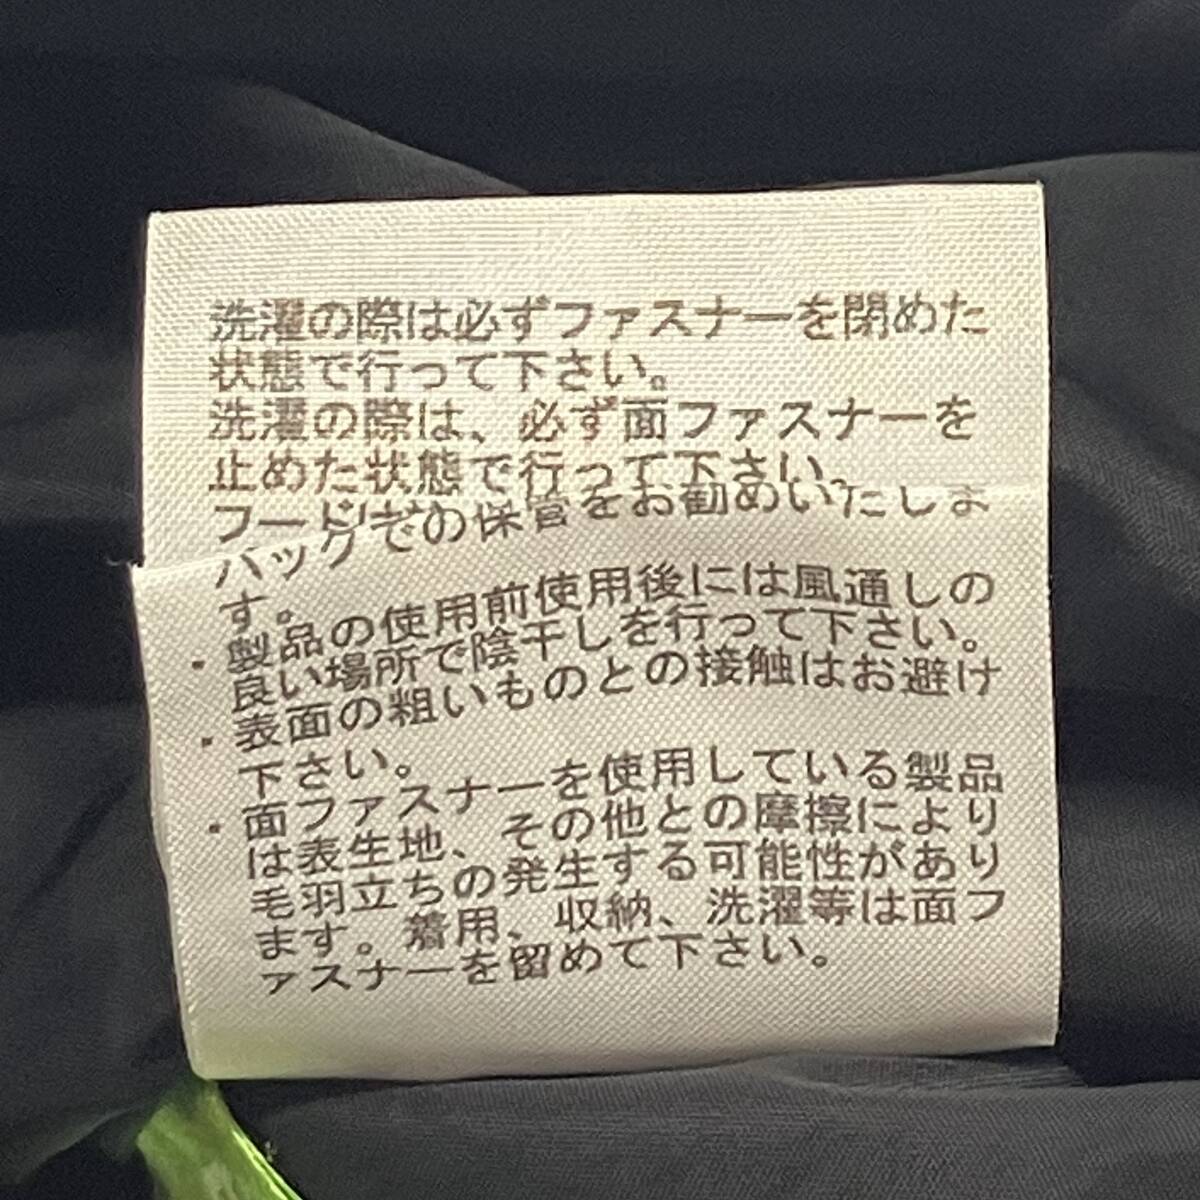 洗濯の際は必ずファスナーを閉めた
状態で行って下さい。
洗濯の際は、必ず面ファスナーを
止めた状態で行って下さい。
フード
バッグでの保管をお勧めいたしま
す。
・製品の使用前使用後には風通しの
良い場所で陰干しを行って下さい。
・表面の粗いものとの接触はお避け
下さい。
・面ファスナーを使用している製品
は表生地、その他との摩擦により
毛羽立ちの発生する可能性があり
ます。着用、収納、洗濯等は面フ
ァスナーを留めて下さい。